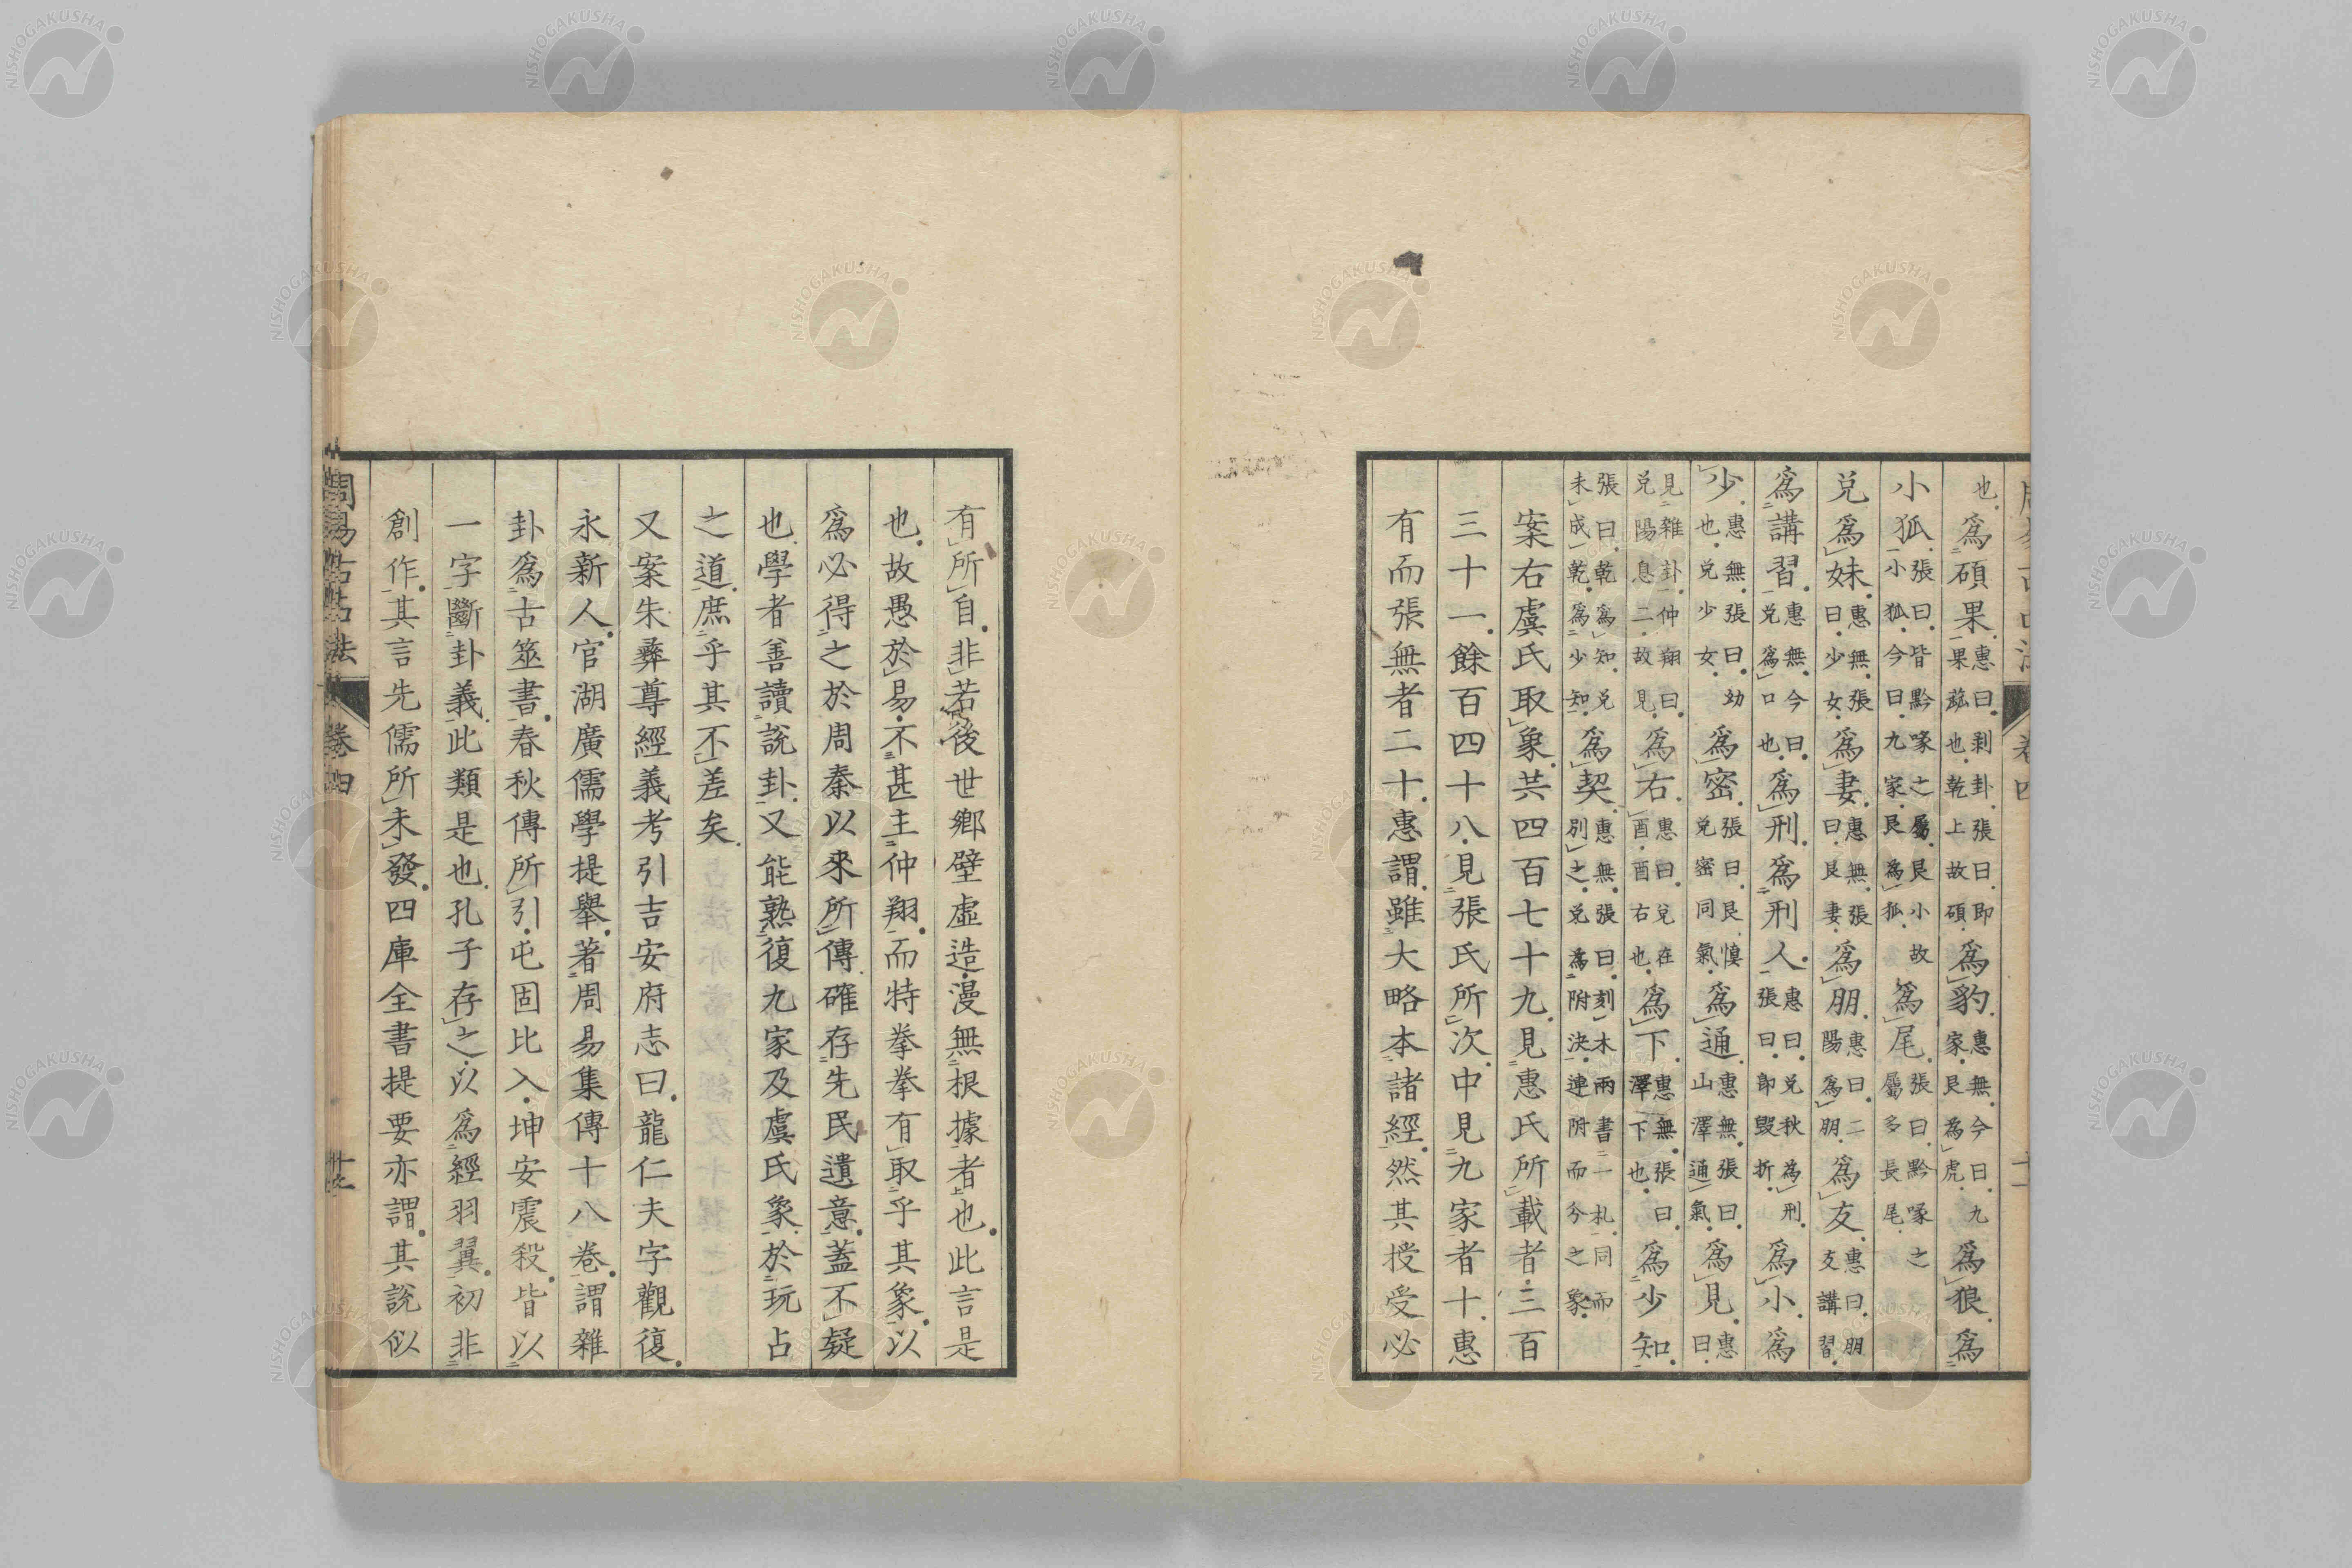 也。為碩果。惠曰。剥卦。張曰。即果蓏也。乾上故碩。為豹。惠無。今曰。九家。艮為虎。為狼。為
小狐。張曰。皆黔喙之屬。艮小故小狐。今曰。九家。艮為狐。為尾。張曰。黔喙之屬多長尾。
兌為妹。惠無。張曰。少女。為妻。惠無。張曰。艮妻。為朋。惠曰。二陽為朋。為友。惠曰。朋友講習。
為講習。惠無。今曰。兌為口也。為刑。為刑人。惠曰。兌秋為刑。張曰。即毀折。為小。為
少。惠無。張曰。幼也。兌少女。為密。張曰。艮慎兌密同氣。為通。惠無。張曰。山澤通氣。為見。惠曰。
見雜卦。仲翔曰。兌陽息二。故見。為右。惠曰。兌在酉。酉右也。為下。惠無。張曰。澤下也。為少知。
張曰。乾為知。兌未成乾。為少知。為契。惠無。張曰。刻木兩書一札。同而別之。兌為附決。連附而今之象。
案右虞氏取象。共四百七十九。見惠氏所載者。三百
三十一。餘百四十八。見張氏所次。中見九家者十。惠
有而張無者二十。惠謂。雖大略本諸經。然其授受必
有所自。非若後世鄉壁虛造。漫無根據者也。此言是
也。故愚於易。不甚主仲翔。而特拳拳有取乎其象。以
為必得之於周秦以來所傳。確存先民遺意。蓋不疑
也。學者善讀說卦。又能熟復九家及虞氏象。於玩占
之道。庶乎其不差矣。
又案朱彝尊經義考引吉安府志曰。龍仁夫字觀復。
永新人。官湖廣儒學提舉。著周易集傳十八卷。謂雜
卦為古筮書。春秋傳所引。屯固比入。坤安震殺。皆以
一字斷卦義。此類是也。孔子存之。以為經羽翼。初非
創作。其言先儒所未發。四庫全書提要亦謂。其說似
卷四